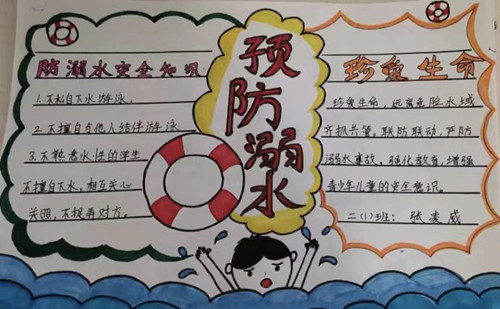 预防溺水
防溺水安全知识
1.不私自下水游泳.
2.不擅自与他人结伴游泳
3.不熟悉水性的学生
不擅自下水,相互关心
关照,不捉弄对方.
珍爱生命
珍爱生命,远离危险水域
齐抓共管,联防联动,严防
溺水事故,强化教育,增强
青少年儿童的安全意识.
二(1)班:张
威